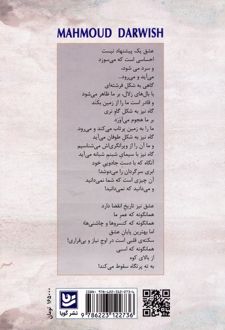 MAHMOUD DARWISH
عشق یک پیشنهاد نیست
احساسی است که می‌سوزد
و سرد می شود،
می‌آید و می‌رود...
گاهی به شکل فرشته‌ای
با بال‌های زلال، بر ما ظاهر می‌شود
و قادر است ما را از زمین بکند
گاه نیز به شکل گاو نری
بر ما هجوم می‌آورد
ما را به زمین پرتاب می‌کند و می‌رود
گاه نیز به شکل طوفان می‌آید
و ما آن را از ویرانگری‌اش می‌شناسیم
گاه نیز با سیمای شبنم شبانه می‌آید
آنگاه که با دست جادویی خود
ابری سرگردان را می‌دوشد!
آن چیزی است که شما نمی‌دانید
و می‌دانید که نمی‌دانید!
عشق نیز تاریخ انقضا دارد
همانگونه که عمر ما
همانگونه که کنسروها و چاشنی‌ها؛
اما بهترین پایان عشق
سکته‌ی قلبی است در اوج نیاز و بی‌قراری!
همانگونه که اسبی
از بالای کوه
به ته پرتگاه سقوط می‌کند!
9 786223 122736
نشر گویا